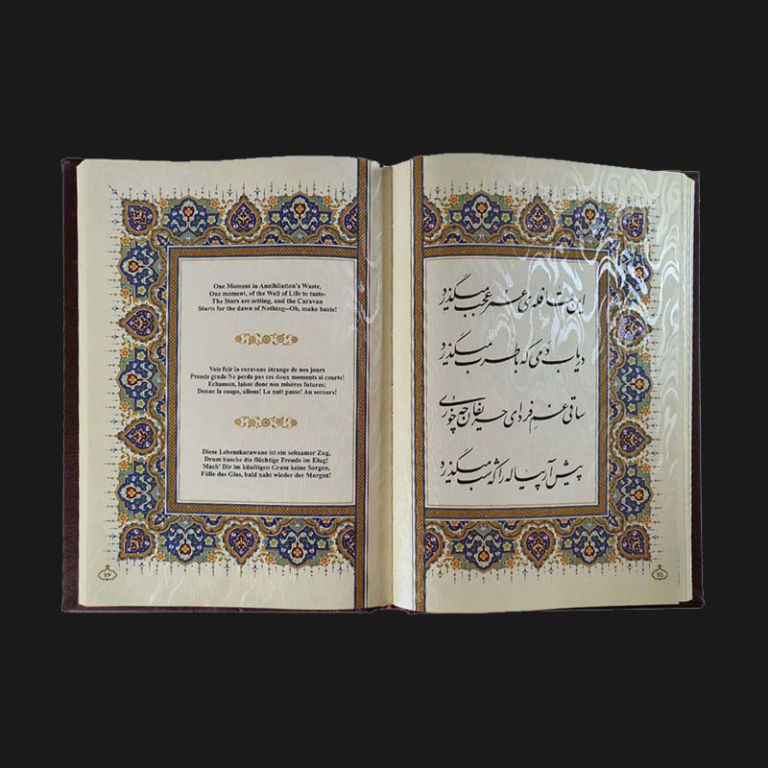 One Moment in Annihilation's Waste,
One moment, of the Well of Life to taste-
The Stars are setting, and the Caravan
Starts for the dawn of Nothing--Oh, make haste!
Vois fuir la caravane étrange de nos jours
Prends grade Ne perds pas ces doux moments si courts!
Echanson, laisse donc nos misères futures;
Donne la coupe, allons! La nuit passe! Au secours!
Diese Lebenskarawane ist ein seltsamer Zug,
Drum hasche die flüchtige Freude im Flug!
Mach' Dir im künftigen Gram keine Sorgen,
Fülle das Glas, bald naht wieder der Morgen!
۷۶
این قافله‌ی عمر عجب میگذرد
دریاب دمی که با طرب میگذرد
ساقی غم فردای حریفان چه خوری
پیش آر پیاله را که شب میگذرد
۷۵